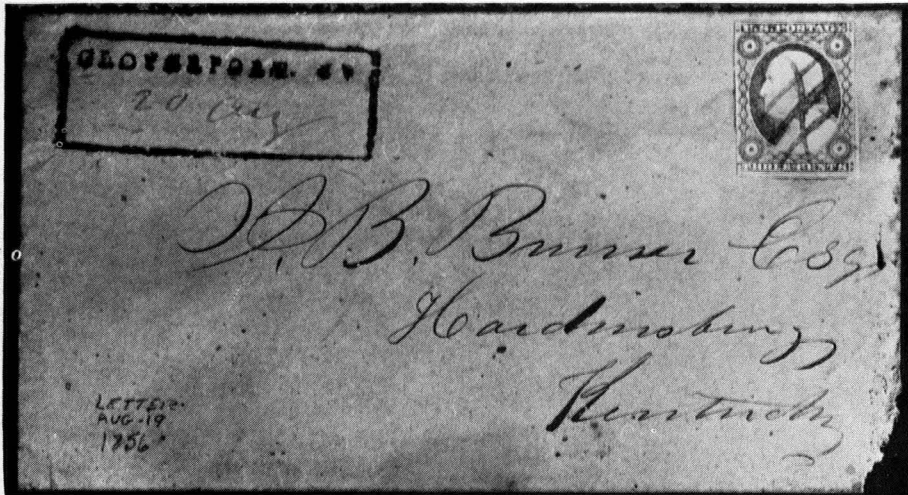 CLOVERPORT. KY
20 Aug
U.S. POSTAGE
THREE CENTS
B. Bruner Esqr
Hardinsburg
Kentucky
LETTER-
AUG-19
1856